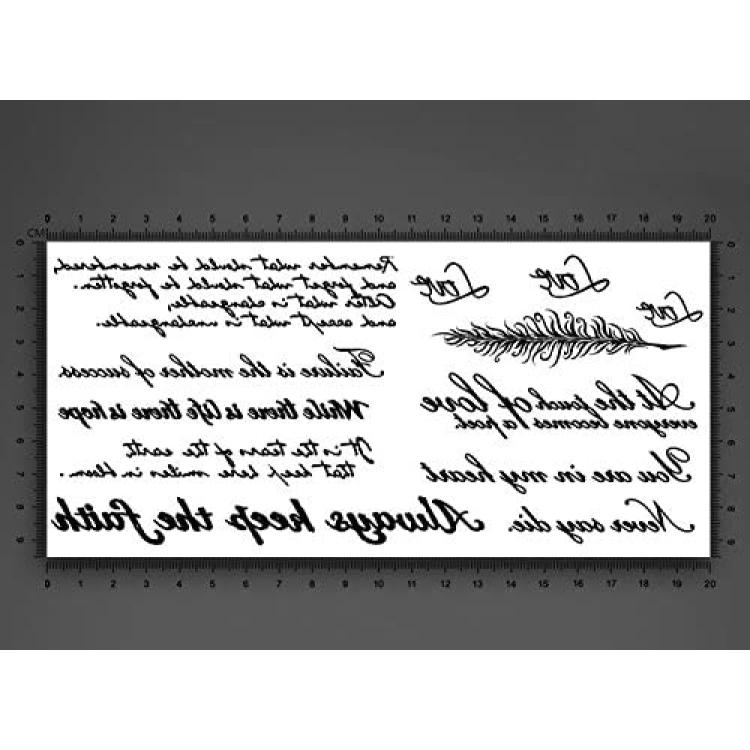 0 1 2 3 4 5 6 7 8 9 10 11 12 13 14 15 16 17 18 19 20
CM
0 1 2 3 4 5 6 7 8 9
Remember what should be remembered,
and forget what should be forgotten.
Alter what is changeable,
and accept what is unchangeable.
Failure is the mother of success
While there is life there is hope
It is the tears of the earth
that keep here smiles in bloom.
Always keep the faith
Love
Love
Love
At the touch of love
everyone becomes a poet.
You are in my heart
Never say die.
0 1 2 3 4 5 6 7 8 9
0 1 2 3 4 5 6 7 8 9 10 11 12 13 14 15 16 17 18 19 20